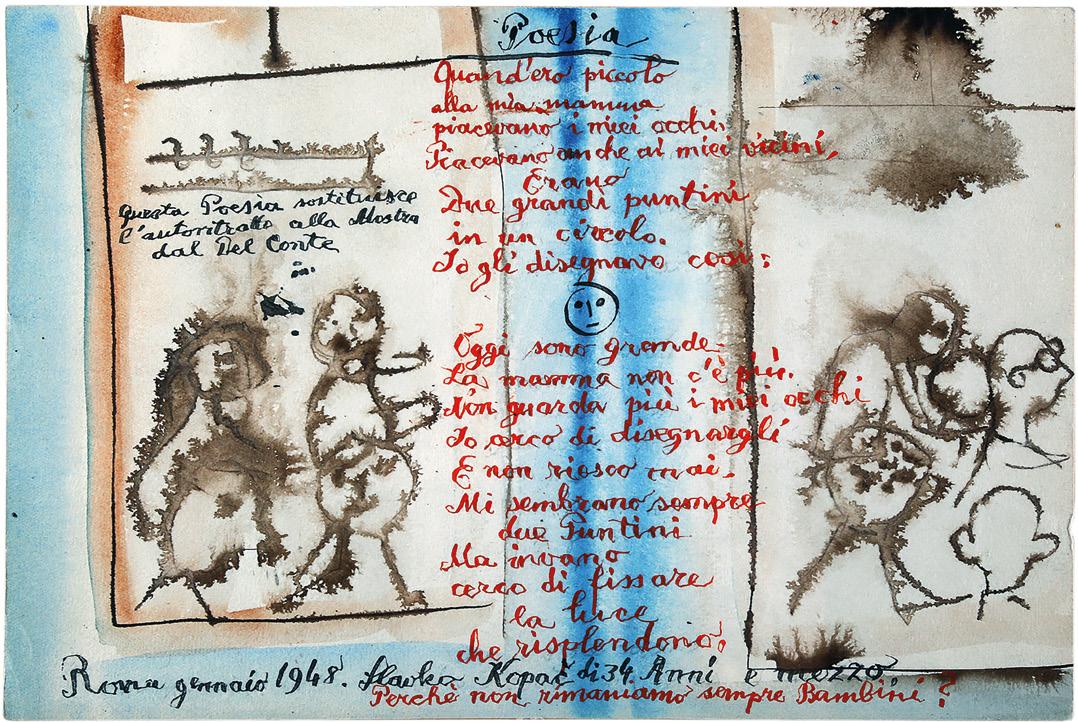 Poesia
Quand'ero piccolo
alla mia mamma
piacevano i miei occhi.
Piacevano anche ai miei vicini,
Erano
Due grandi puntini
in un circolo.
Io gli disegnavo così:
Oggi sono grande
La mamma non c'è più.
Non guarda più i miei occhi
Io cerco di disegnargli
E non riesco mai.
Mi sembrano sempre
due Puntini
Ma invano
cerco di fissare
la luce
che risplendono.
Questa Poesia sostituisce
l'autoritratto alla Mostra
dal Del Conte
Roma gennaio 1948. Slavko Kopač di 34 Anni e mezzo
Perchè non rimaniamo sempre Bambini?